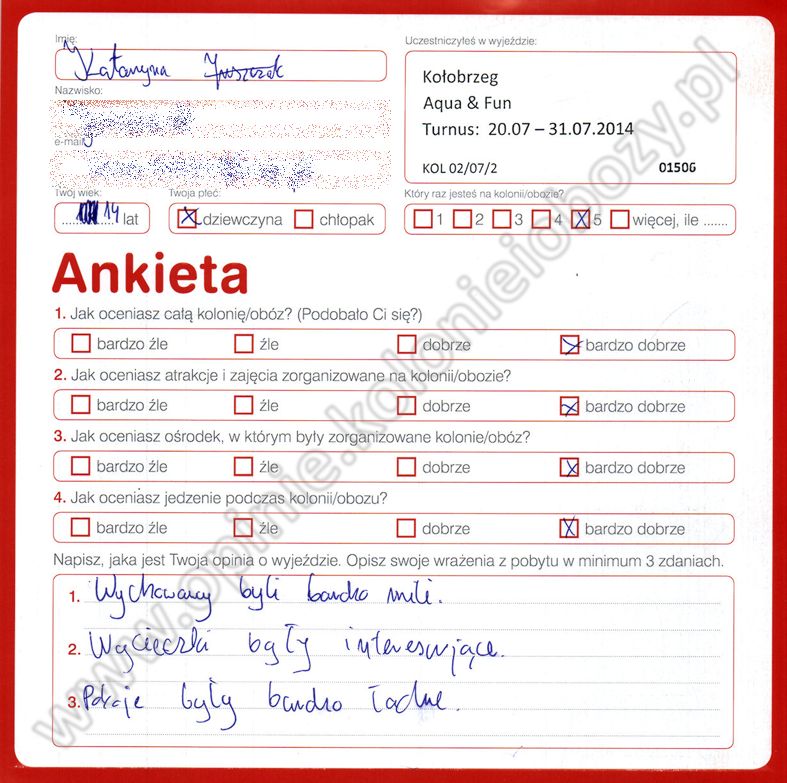 Imię:
Uczestniczyłeś w wyjeździe:
Katarzyna
Kołobrzeg
Aqua & Fun
Turnus: 20.07 – 31.07.2014
KOL 02/07/2 01506
Nazwisko:
e-mail
Twój wiek: Twoja płeć: Który raz jesteś na kolonii/obozie?
14 lat dziewczyna chłopak 1 2 3 4 5 więcej, ile .......
Ankieta
1. Jak oceniasz całą kolonię/obóz? (Podobało Ci się?)
bardzo źle źle dobrze bardzo dobrze
2. Jak oceniasz atrakcje i zajęcia zorganizowane na kolonii/obozie?
bardzo źle źle dobrze bardzo dobrze
3. Jak oceniasz ośrodek, w którym były zorganizowane kolonie/obóz?
bardzo źle źle dobrze bardzo dobrze
4. Jak oceniasz jedzenie podczas kolonii/obozu?
bardzo źle źle dobrze bardzo dobrze
Napisz, jaka jest Twoja opinia o wyjeździe. Opisz swoje wrażenia z pobytu w minimum 3 zdaniach.
1. Wychowawcy byli bardzo mili.
2. Wycieczki były interesujące.
3. Pokoje były bardzo ładne.
www.opinie.kolonieiobozy.pl